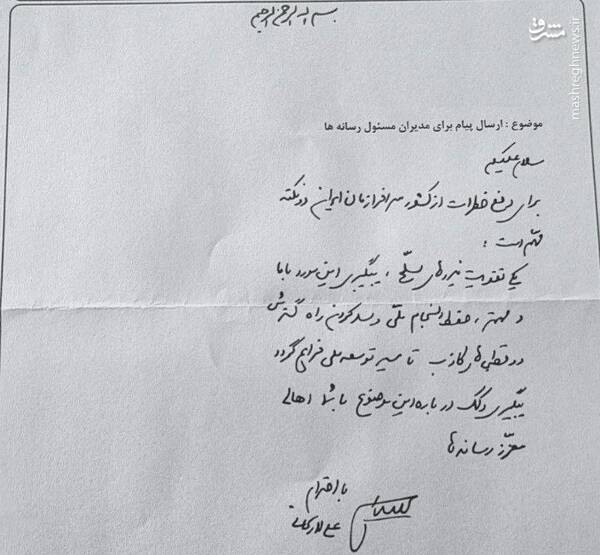 بسم الله الرحمن الرحیم
مشرق
mashreghnews.ir
موضوع : ارسال پیام برای مدیران مسئول رسانه ها
سلام علیکم
برای رفع خطرات از کشور سرافرازمان ایران دو نکته
مهم است :
یکی تقویت نیروهای مسلّح ، پیگیری این مورد با ما
و مهمتر ، حفظ انسجام ملّی و سد کردن راه گسترش
دو قطبی‌های کاذب تا مسیر توسعه ملی فراهم گردد
پیگیری و کمک درباره این موضوع با شما اهالی
معزّز رسانه ها
با احترام
علی لاریجانی